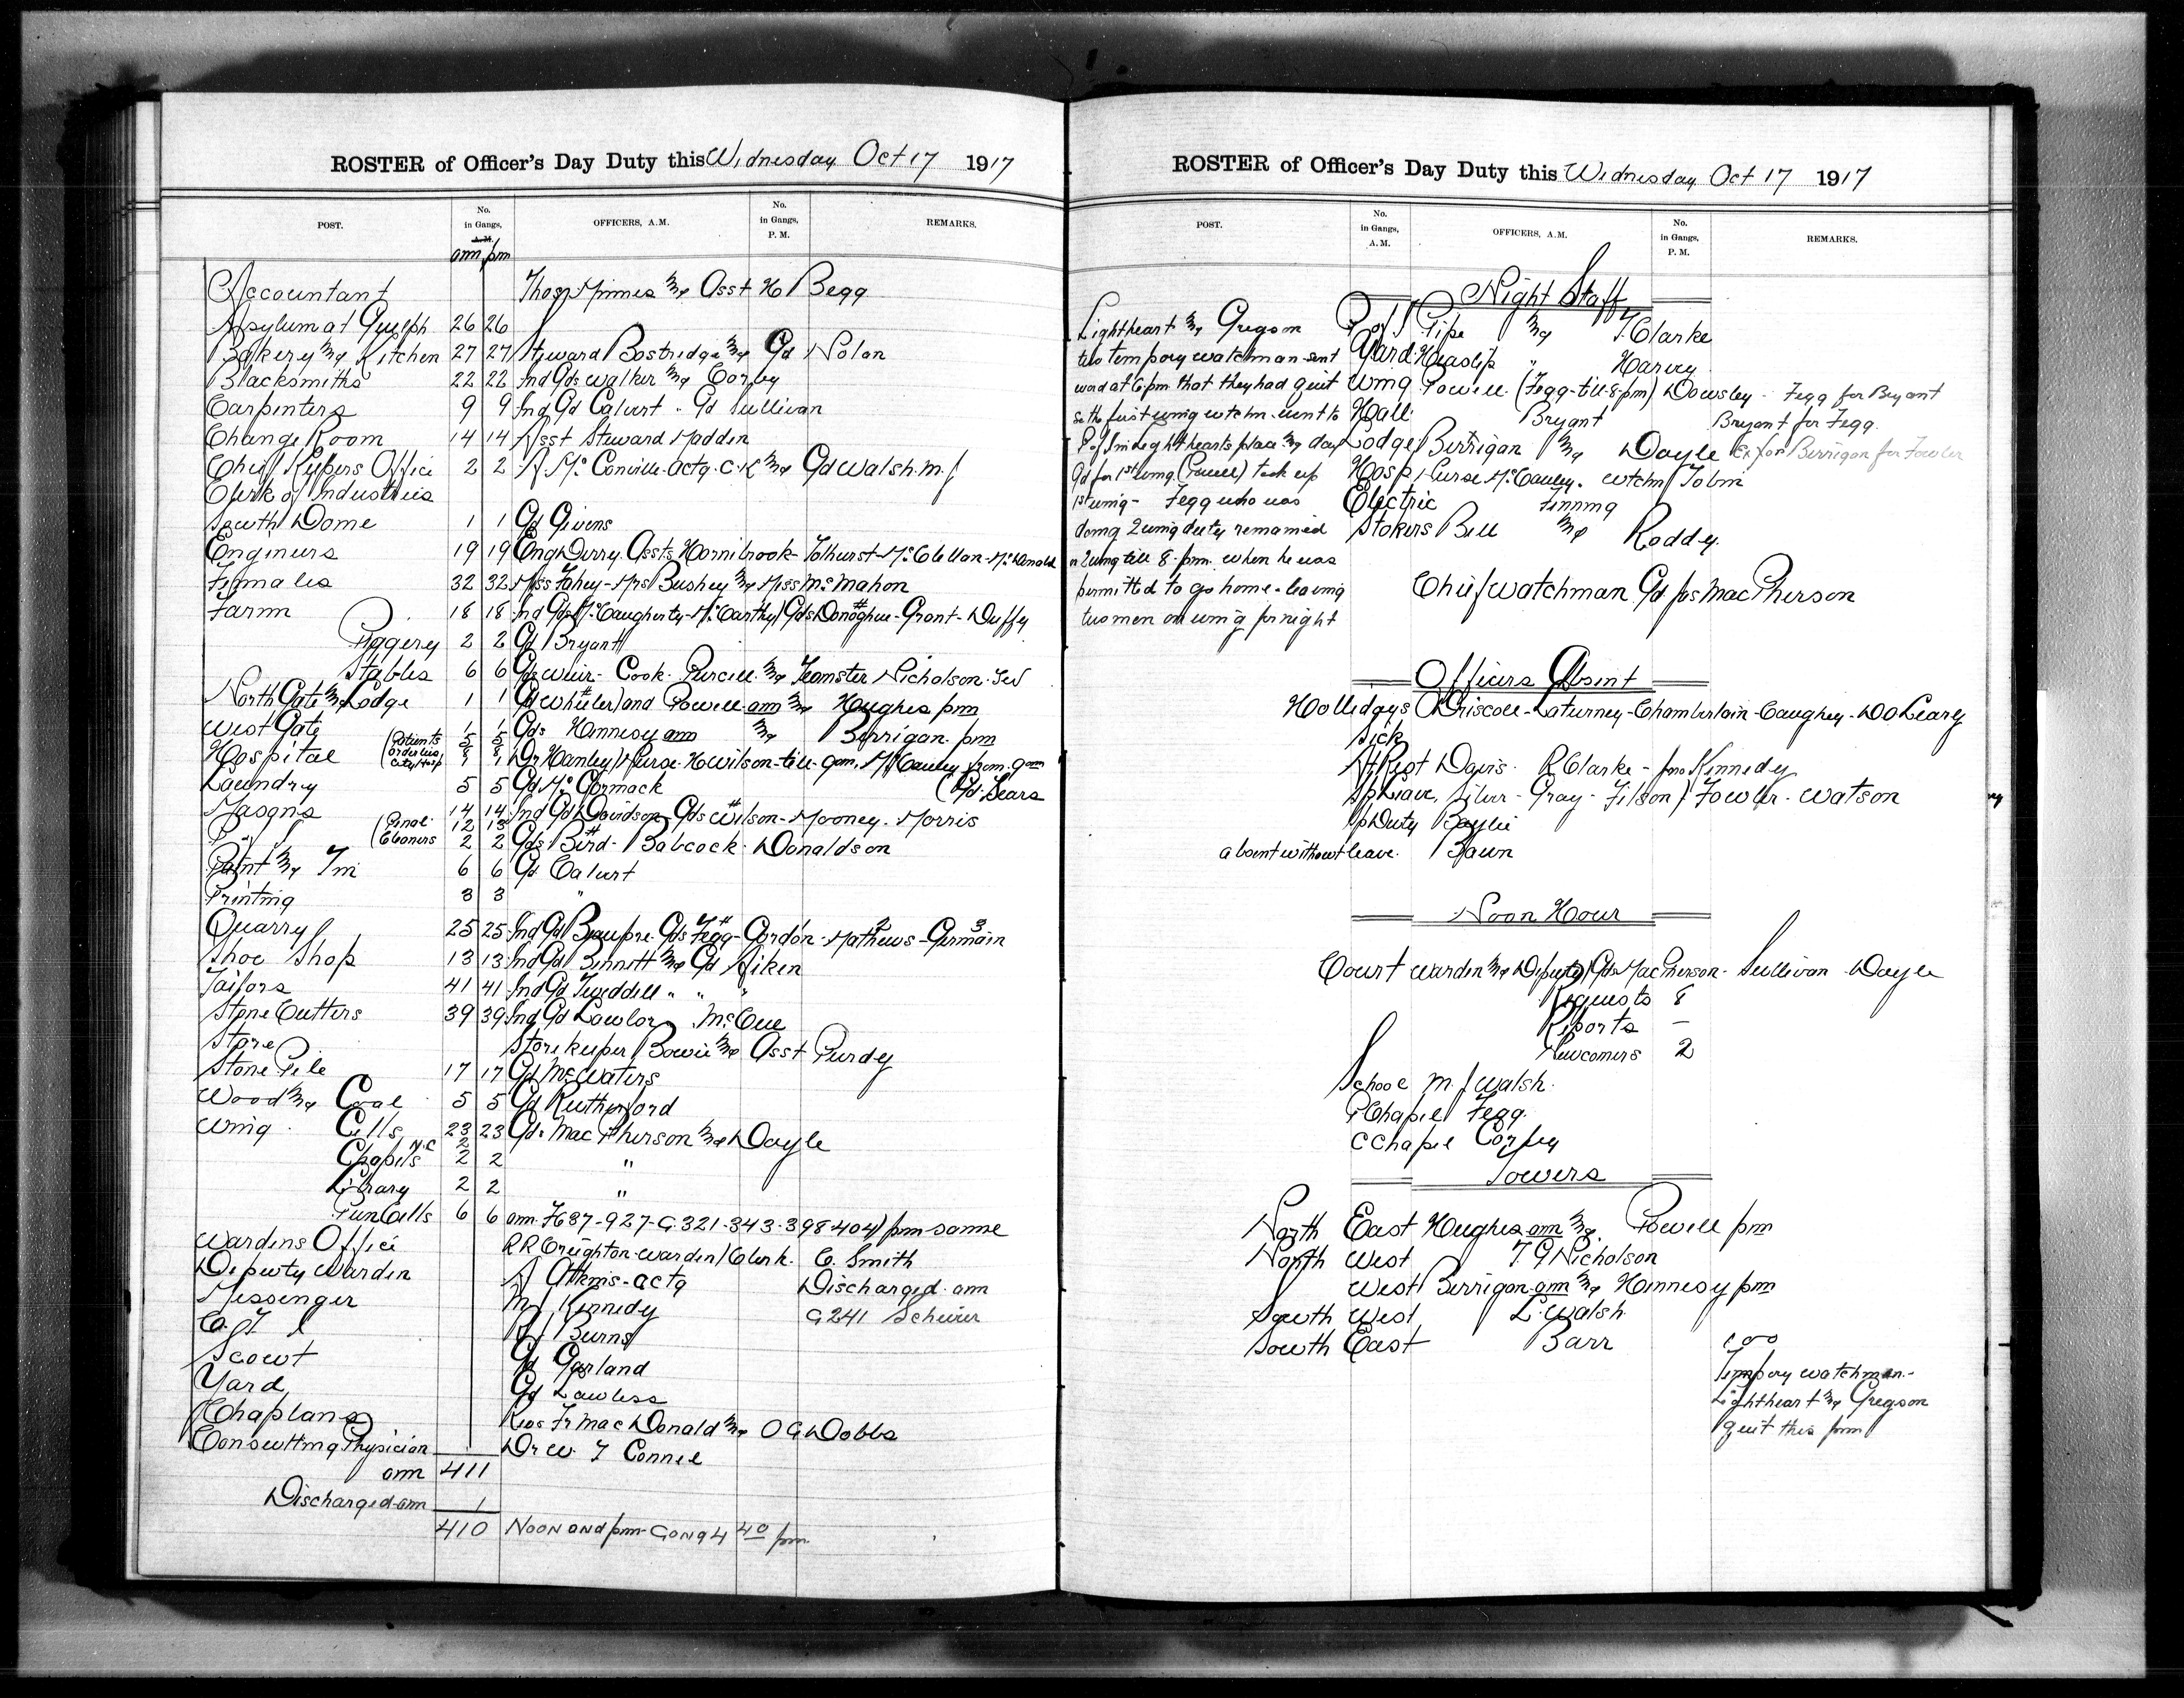 ROSTER of Officer's Day Duty this Wednesday Oct 17 1917
POST. No. in Gangs, A.M. OFFICERS, A.M. No. in Gangs, P. M. REMARKS.
am pm
Accountant Thos Minnes & Asst H Begg
Asylum at Guelph 26 26
Bakery & Kitchen 27 27 Steward Bostridge & Gd Nolan
Blacksmiths 22 22 Ind Gds Walker & Corby
Carpenters 9 9 Ind Gd Calvert " Gd Sullivan
Change Room 14 14 Asst Steward Madden
Chief Keepers Office 2 2 R. McConville-actg. C.K & Gd Walsh. M. J
Clerk of Industries
South Dome 1 1 Gd Givens
Engineers 19 19 Eng Derry. Assts Hornibrook- Tolhurst- McClellan- McDonald
Females 32 32 Miss Fahey- Mrs Bushey & Miss McMahon
Farm 18 18 Ind Gds McCaugherty- McCarthy/ Gds Donoghue- Grant- Duffy
Piggery 2 2 Gd Bryant
Stables 6 6 Gds Weir- Cook. Purcell & Teamster Nicholson. J W
North Gate & Lodge 1 1 Gd Wheeler/ and Powell am & Hughes pm
West Gate 1 1 Gds Hennesy am & Berrigan. pm
Hospital (Patients 5 5 Orderlies 8 8 City Hosp 1 1 Dr Hanley/ Nurse. H Wilson- till 9am, McCauley from 9am
Laundry 5 5 Gd McCormack (Gd. Sears
Masons 14 14 Ind Gd Davidson- Gds Wilson- Mooney. Morris
P of I (Penal 12 13
Cleaners 2 2 Gds Bird- Babcock. Donaldson
Paint & Tin 6 6 Gd Calvert
Printing 3 3 "
Quarry 25 25 Ind Gd Beaupre. Gds Fegg- Gordon- Mathews- Germain
Shoe Shop 13 13 Ind Gd Bennett & Gd Aiken
Tailors 41 41 Ind Gd Tweddell " " "
Stone Cutters 39 39 Ind Gd Lawlor McCue
Store Store keeper Bowie & Asst Purdy
Stone Pile 17 17 Gd McWaters
Wood & Coal 5 5 Gd Rutherford
Wing. Cells 23 23 Gds MacPherson & Doyle
Chapels 2 2 "
Library 2 2 "
Pun Cells 6 6 am. F687-927-G.321-343-398-404) pm-same
Wardens Office RR Creighton-Warden/ Clerk. C. Smith
Deputy Warden A Atkins-actg Discharged. am
Messenger M J Kennedy G241 Scheuer
C.T.I R J Burns
Scout Gd Garland
Yard Gd Lawless
Chaplans Revs Fr MacDonald & O G Dobbs
Consulting Physician Dr W. T Connel
am 411
Discharged am 1
410 Noon and pm-Gong 4 40 pm.
ROSTER of Officer's Day Duty this Wednesday Oct 17 1917
POST. No. in Gangs, A. M. OFFICERS, A.M. No. in Gangs, P. M. REMARKS.
Night Staff
Lightheart & Gregson P of I Pipe & T. Clarke
two tempory watchman-sent Yard Heaslip " Harvey
word at 6 pm. that they had quit Wing Powell. (Fegg-till-8pm) Dowsley- Fegg for Bryant
so the first wing wtchm-went to Hall. Bryant Bryant for Fegg.
P of I in Lighthearts place & day Lodge Berrigan & Doyle Ex for Berrigan for Fowler
Gd for 1st wing (Powell) took up Hosp Nurse McCauley. wtchm Tobin
1st wing- Fegg who was Electric Finning
doing 2 wing duty remained Stokers Bell & Roddy.
in 2 wing till 8. pm. when he was
permitted to go home-leaving Chief Watchman Gd Jos MacPherson
two men on wing for night
Officers Absent
Hollidays Driscoll-Laturney-Chamberlain-Caughey-D O Leary
Sick
At Rest Davis. R Clarke- Jno Kennedy
Sp Leave, Silver- Gray- Filson/ Fowler. Watson
Sp Duty Baylie
absent without leave. Bawn
Noon Hour
Court Warden & Deputy) Gds MacPherson- Sullivan Doyle
Requests 8
Reports -
Newcomers 2
School M. J Walsh.
P Chapel Fegg.
C Chapel Corby
Towers
North East Hughes am & Powell pm
North West T G Nicholson
West Berrigan-am & Hennesy pm
South West L. Walsh.
South East Barr
Tempory watchmen-
Lightheart & Gregson
quit this pm